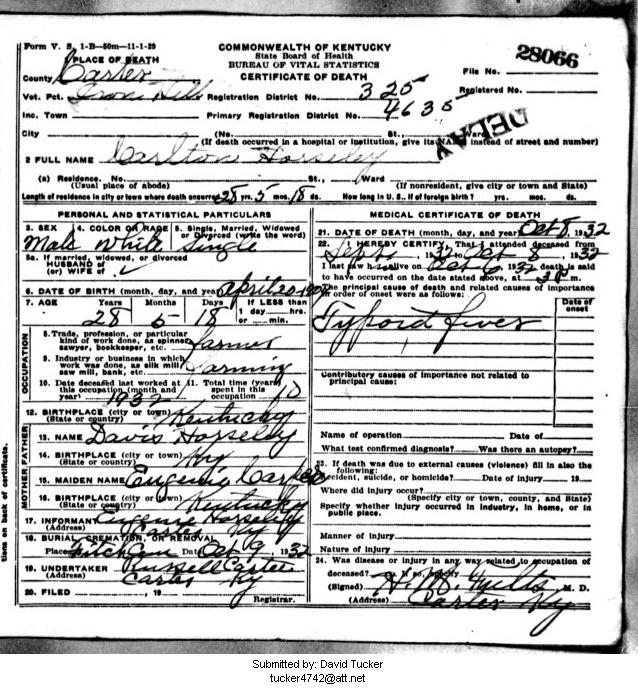 Form V. S. 1-B—50m—11-1-29
COMMONWEALTH OF KENTUCKY
State Board of Health
BUREAU OF VITAL STATISTICS
CERTIFICATE OF DEATH
28066
File No.
Registered No.
PLACE OF DEATH
County Carter
Vot. Pct. Iron Hill Registration District No. 325
Inc. Town Primary Registration District No. 4635
DELAY
City (No. St., Ward)
(If death occurred in a hospital or institution, give its NAME instead of street and number)
2 FULL NAME Carlton Horseley
(a) Residence. No. St., Ward
(Usual place of abode) (If nonresident, give city or town and State)
Length of residence in city or town where death occurred 28 yrs. 5 mos. 18 ds. How long in U. S., if of foreign birth? yrs. mos. ds.
PERSONAL AND STATISTICAL PARTICULARS
3. SEX 4. COLOR OR RACE 5. Single, Married, Widowed
or Divorced (write the word)
Male White Single
5a. If married, widowed, or divorced
HUSBAND of
(or) WIFE of
6. DATE OF BIRTH (month, day, and year) April 20
7. AGE Years Months Days If LESS than
1 day hrs.
or min.
28 5 18
OCCUPATION
8. Trade, profession, or particular
kind of work done, as spinner,
sawyer, bookkeeper, etc. Farmer
9. Industry or business in which
work was done, as silk mill,
saw mill, bank, etc. Farming
10. Date deceased last worked at
this occupation (month and
year) 1932
11. Total time (years)
spent in this
occupation 10
12. BIRTHPLACE (city or town) Kentucky
(State or country)
FATHER
13. NAME Davis Horseley
14. BIRTHPLACE (city or town) Ky
(State or country)
MOTHER
15. MAIDEN NAME Eugenie
16. BIRTHPLACE (city or town) Kentucky
(State or country)
17. INFORMANT Eugenie Horseley
(Address) Carter Ky
18. BURIAL, CREMATION, OR REMOVAL
Place Date Oct 9, 1932
19. UNDERTAKER Russell Carter
Carter Ky
20. FILED , 19
Registrar.
MEDICAL CERTIFICATE OF DEATH
21. DATE OF DEATH (month, day, and year) Oct 8, 1932
22. I HEREBY CERTIFY, That I attended deceased from
Sept , 1932 Oct 8, 1932
I last saw h alive on Oct 6, 1932 death is said
to have occurred on the date stated above, at m.
The principal cause of death and related causes of importance
in order of onset were as follows:
Date of
onset
Typoid fever
Contributory causes of importance not related to
principal cause:
Name of operation Date of
What test confirmed diagnosis? Was there an autopsy?
23. If death was due to external causes (violence) fill in also the
following:
Accident, suicide, or homicide? Date of injury 19
Where did injury occur?
(Specify city or town, county, and State)
Specify whether injury occurred in industry, in home, or in
public place.
Manner of injury
Nature of injury
24. Was disease or injury in any way related to occupation of
deceased? If so, specify
(Signed) M. D.
(Address) Carter Ky
tions on back of certificate.
Submitted by: David Tucker
tucker4742@att.net